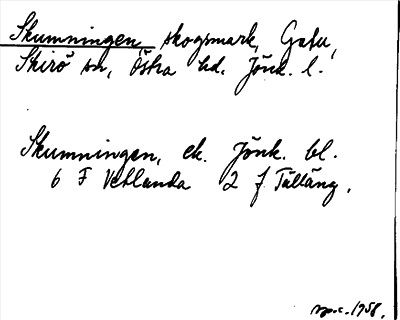 Skumningen, skogsmark, Gatu,
Skirö sn, Östra hd. Jönk. l.
Skumningen, ek. Jönk. bl.
6 F Vetlanda 2 f Tälläng.
1958.